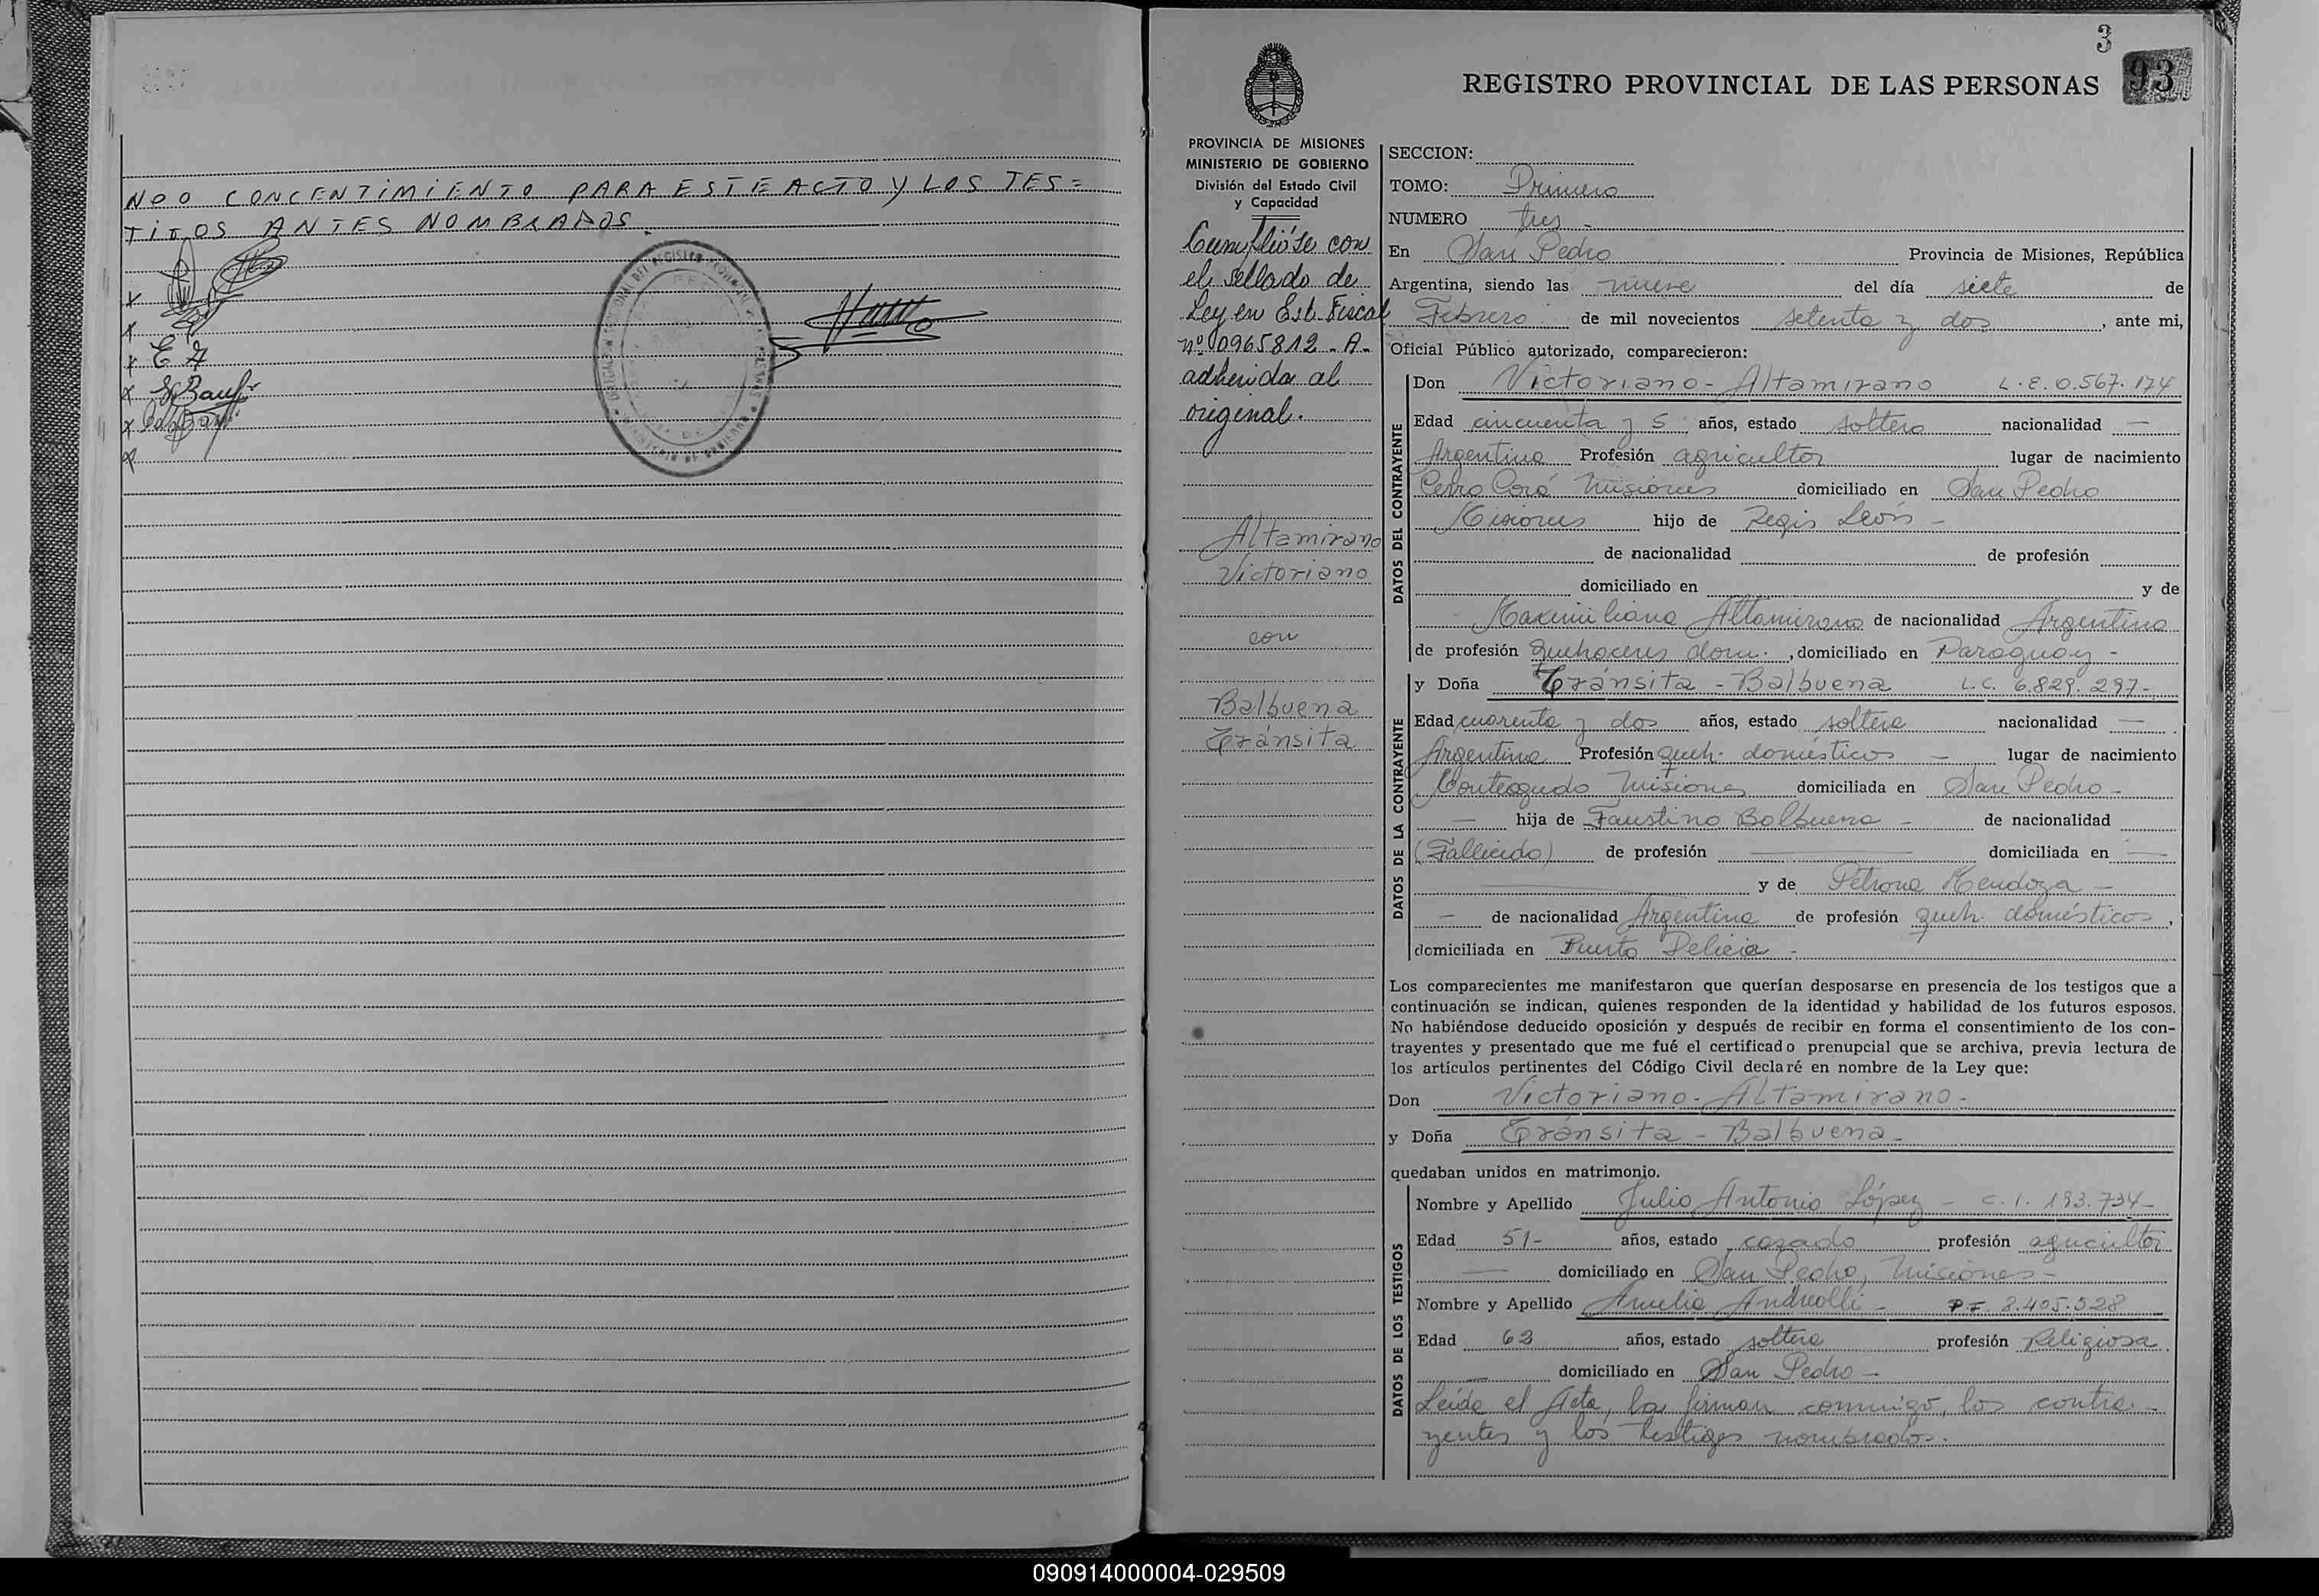 NDO CONCENTIMIENTO PARA ESTE ACTO Y LOS TES=
TITOS ANTES NOMBRADOS.
3
93
REGISTRO PROVINCIAL DE LAS PERSONAS
PROVINCIA DE MISIONES
MINISTERIO DE GOBIERNO
División del Estado Civil
y Capacidad
Cumplióse con
el sellado de
Ley en Est. Fiscal
nº 0965812-A-
adherida al
original.
Altamirano
Victoriano
con
Balbuena
Tránsita
SECCION:
TOMO: Primero
NUMERO tres -
En San Pedro Provincia de Misiones, República
Argentina, siendo las nueve del día siete de
Febrero de mil novecientos setenta y dos, ante mi,
Oficial Público autorizado, comparecieron:
DATOS DEL CONTRAYENTE
Don Victoriano - Altamirano L.E. 0.567.174
Edad cincuenta y 5 años, estado soltero nacionalidad —
Argentina Profesión agricultor lugar de nacimiento
Cerro Corá Misiones domiciliado en San Pedro
Misiones hijo de Regis León -
de nacionalidad de profesión
domiciliado en y de
Maximiliana Altamirano de nacionalidad Argentina
de profesión quehaceres dom. , domiciliado en Paraguay -
DATOS DE LA CONTRAYENTE
y Doña Tránsita - Balbuena L.C. 6.829.297-
Edad cuarenta y dos años, estado soltera nacionalidad —
Argentina Profesión queh. domésticos - lugar de nacimiento
Monteagudo Misiones domiciliada en San Pedro -
— hija de Faustino Balbuena - de nacionalidad
(Fallecido) de profesión — domiciliada en —
— y de Petrona Mendoza -
— de nacionalidad Argentina de profesión queh. domésticos,
domiciliada en Puerto Delicia -
Los comparecientes me manifestaron que querían desposarse en presencia de los testigos que a
continuación se indican, quienes responden de la identidad y habilidad de los futuros esposos.
No habiéndose deducido oposición y después de recibir en forma el consentimiento de los con-
trayentes y presentado que me fué el certificado prenupcial que se archiva, previa lectura de
los artículos pertinentes del Código Civil declaré en nombre de la Ley que:
Don Victoriano - Altamirano -
y Doña Tránsita - Balbuena -
quedaban unidos en matrimonio.
DATOS DE LOS TESTIGOS
Nombre y Apellido Julio Antonio López - C.I. 193.734-
Edad 51- años, estado casado profesión agricultor
— domiciliado en San Pedro, Misiones -
Nombre y Apellido Amelia Andreolli - P.F. 8.405.528
Edad 63 años, estado soltera profesión Religiosa
— domiciliado en San Pedro -
Leída el Acta, la firman conmigo, los contra-
yentes y los testigos nombrados.
090914000004-029509